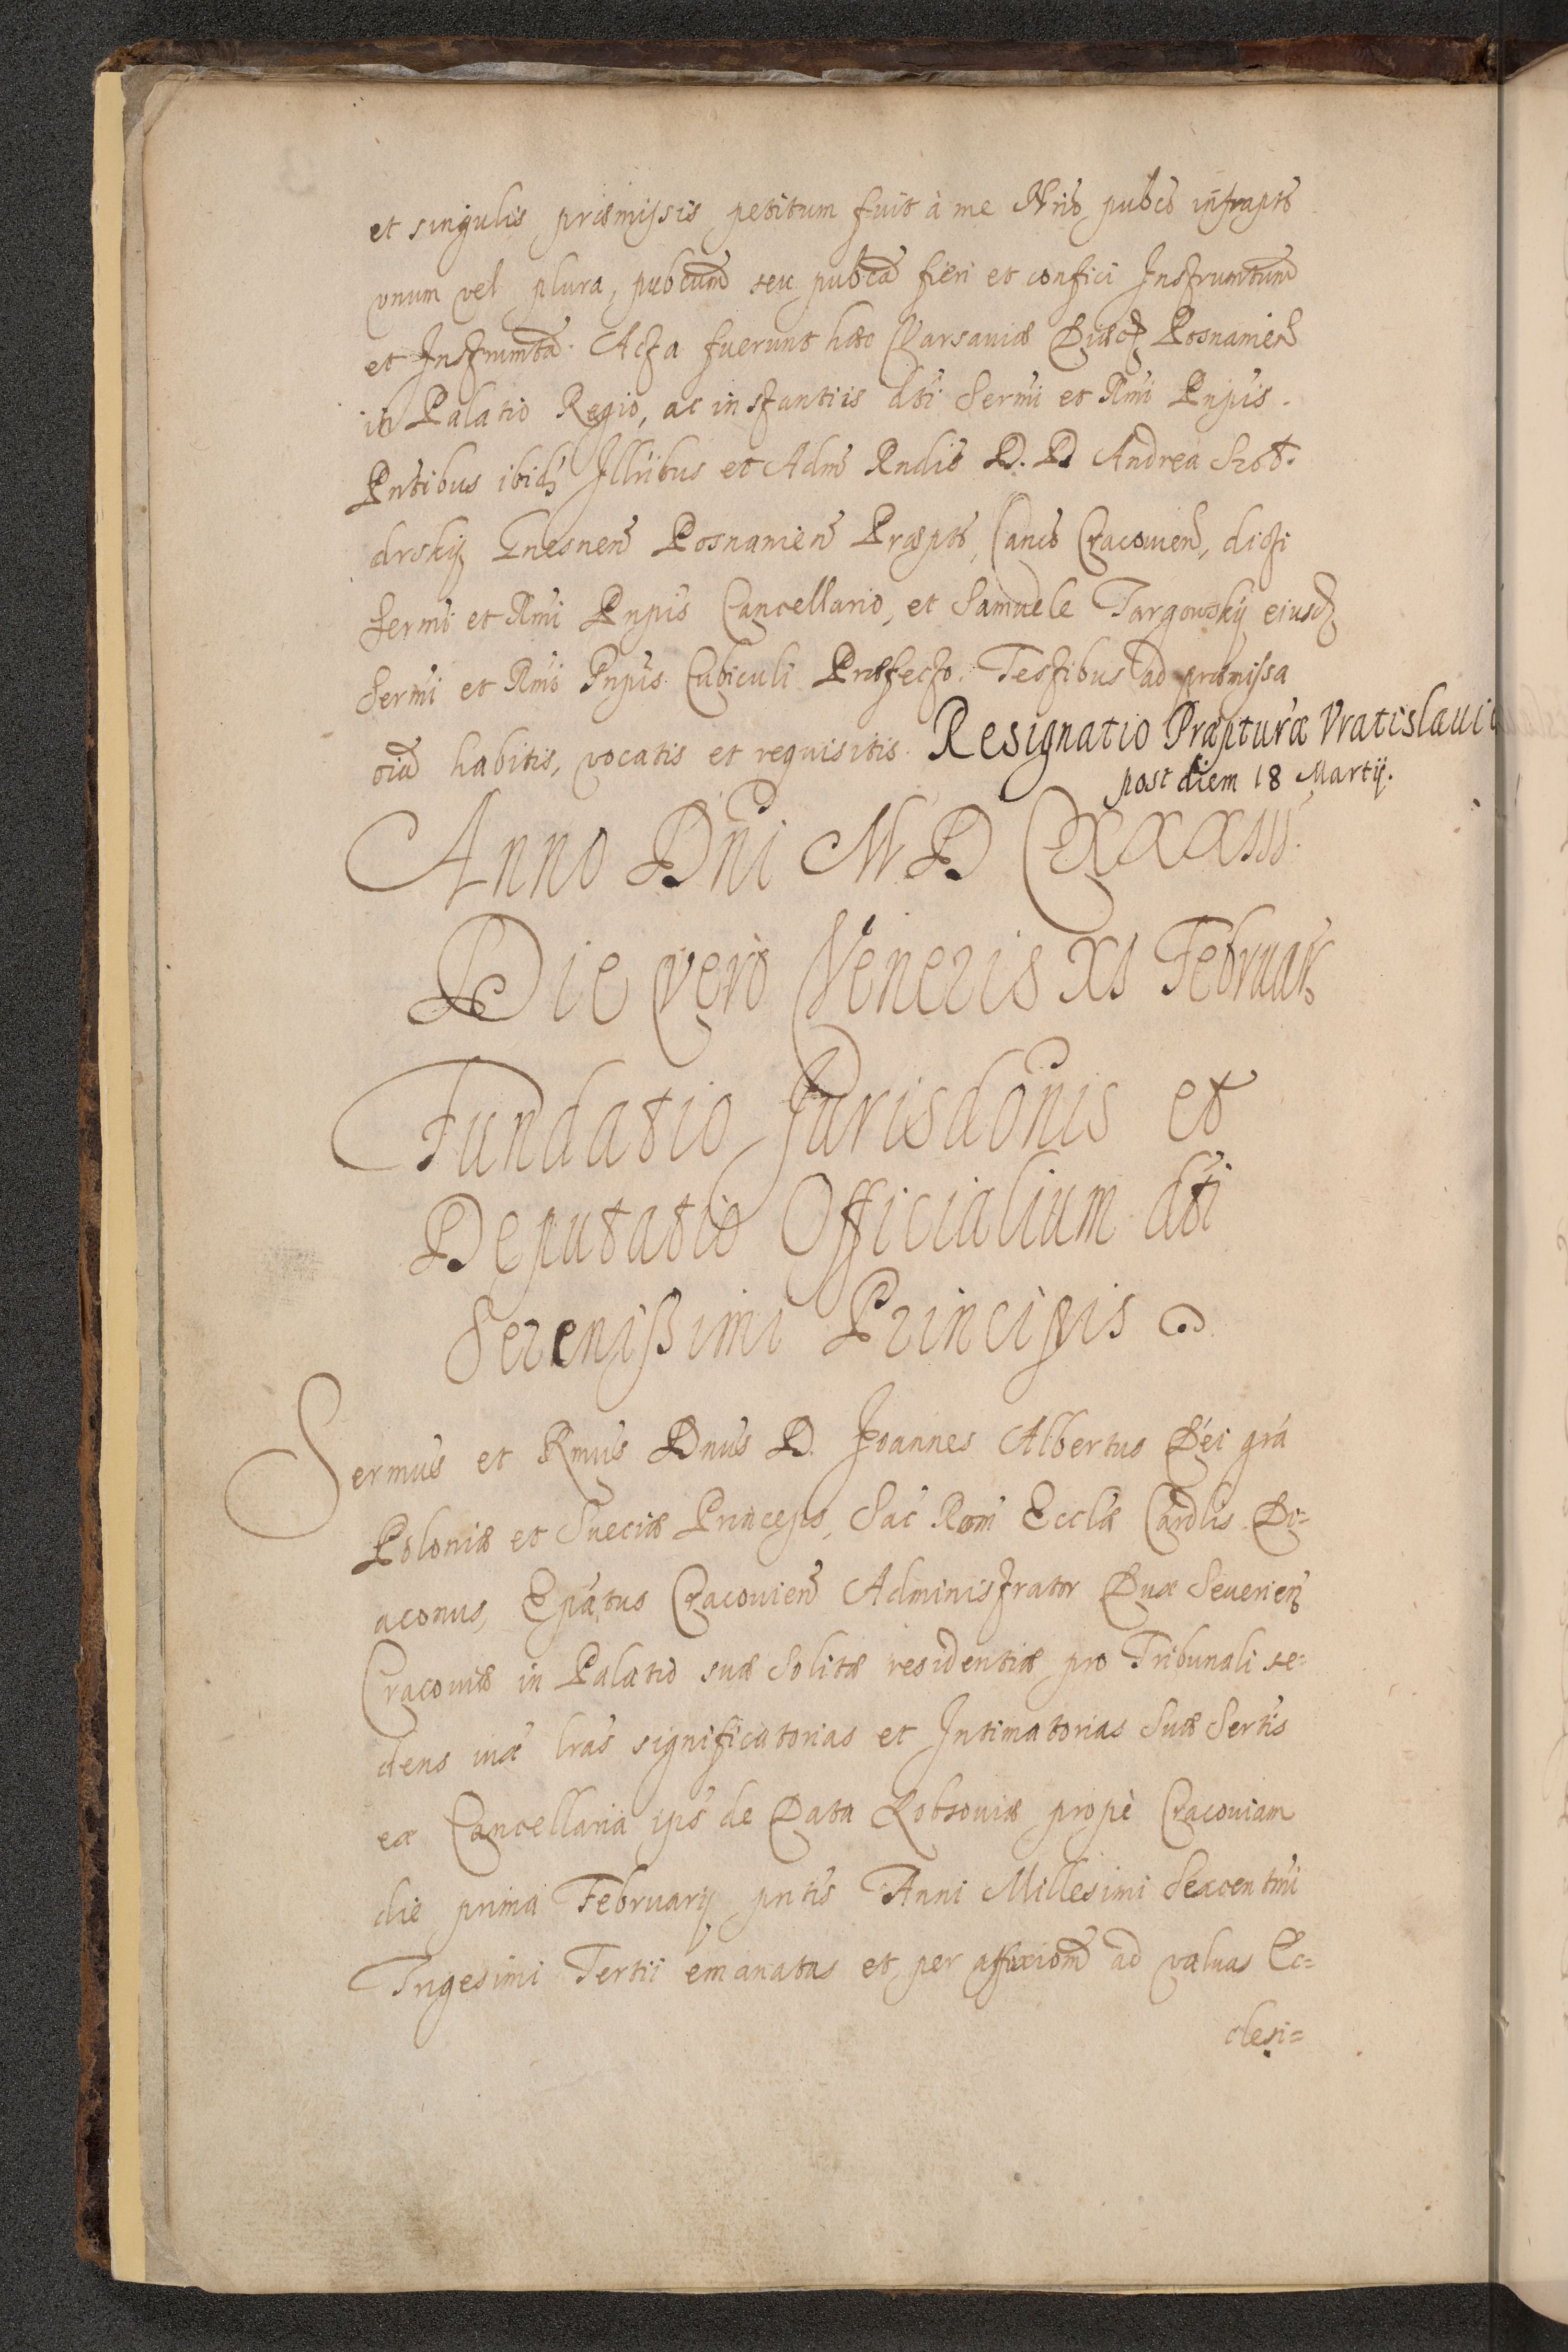 et singulis præmissis petitum fuit à me Nrio pubco infrapto
vnum vel plura, pubcum seu pubca fieri et confici Instrumtum
et Instrumta. Acta fuerunt hæc Varsauiæ Diæc Posnanien
in Palatio Regio, ac in stantiis dti Sermi et Rmi Pnpis.
Pntibus ibid Illribus et Adm Rndis D. D Andrea Szoł.
drskij Gnesnen Posnanien Præpto, Canco Cracouien, dicti
Sermi et Rmi Pnpis Cancellario, et Samuele Targowskij eiusd
Sermi et Rmi Pnpis Cubiculi Præfecto. Testibus ad præmissa
oia habitis, vocatis et requisitis. Resignatio Præpturæ Vratislaui
post diem 18 Martij.
Anno Dni M D CXXXIII.
Die vero Veneris XI Februar
Fundatio Jurisdonis et
Deputatio Officialium dti
Serenißimi Principis
Sermus et Rmus Dnus D. Joannes Albertus Dei gra
Poloniæ et Sueciæ Princeps, Sac Rom Ecclæ Cardlis Di=
aconus, Epatus Cracouien Administrator Dux Seuerien
Cracouiæ in Palatio suæ solitæ residentiæ pro Tribunali se=
dens lras significatorias et Intimatorias Suæ Sertis
ex Cancellaria ips de Data Lobzouiæ propè Cracouiam
die prima Februarij pntis Anni Millesimi Sexcentmi
Trigesimi Tertii emanatas et per affixionem ad valuas Ec=
clesi=